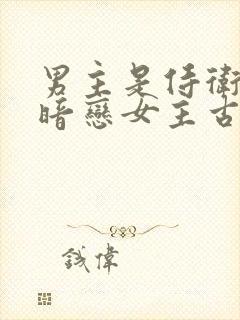 男主是侍衛
暗戀女主古
鉞偉